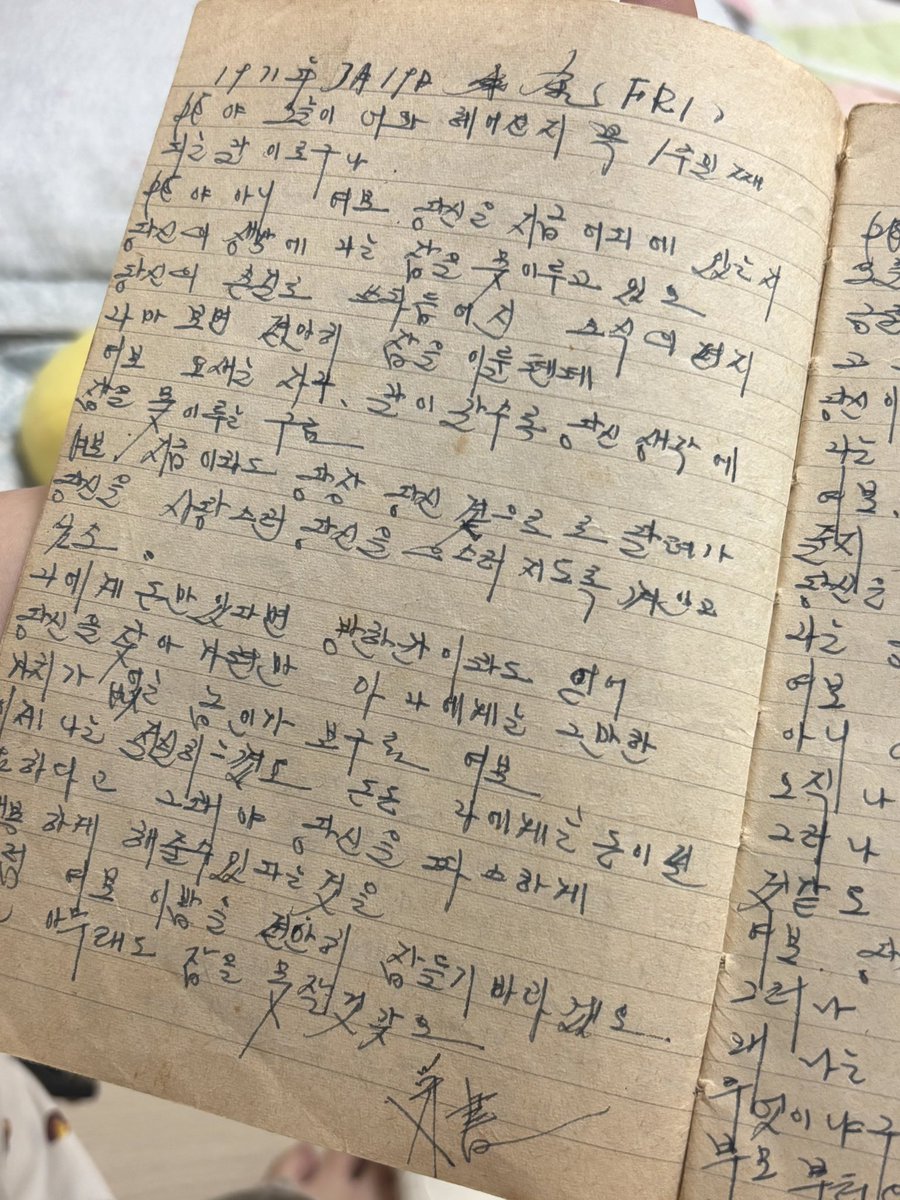 1971年 3月 19日 金 (FRI)
야 오늘이 너와 헤어진지 꼭 1주일 째
되는 날 이로구나
야 아니 여보 당신은 지금 어디에 있는지
당신의 생각에 나는 잠을 못이루고 있오
당신의 손길로 쓰다듬어진 소식의 편지
나마 보면 편안히 잠을 이룰텐데
여보 요새는 자꾸, 날이 갈수록 당신 생각에
잠을 못이루는구려
여보. 지금이라도 당장 당신 곁으로 로 달려가
당신을 사랑스러 당신을 으스러 지도록 껴안고
싶소.
나에게 돈만 있다면 방한칸이라도 얻어
당신을 찾아 가련만 아 나에게는 그만한
가치가 없는 놈인가 보구려 여보
나는 절실히 돈은 나에게는 돈이 필
요하다고 그래야 당신을 따스하게
하게 해줄수 있다는 것을
여보 이밤을 편안히 잠들기 바라겠오.
아무래도 잠을 못잘것 같오
오늘
당신이
나는
여보.
당신은
나는
여보
아니
오직 나
그러나
것같오
여보.
그러나
왜 나는
무엇이냐구
부모